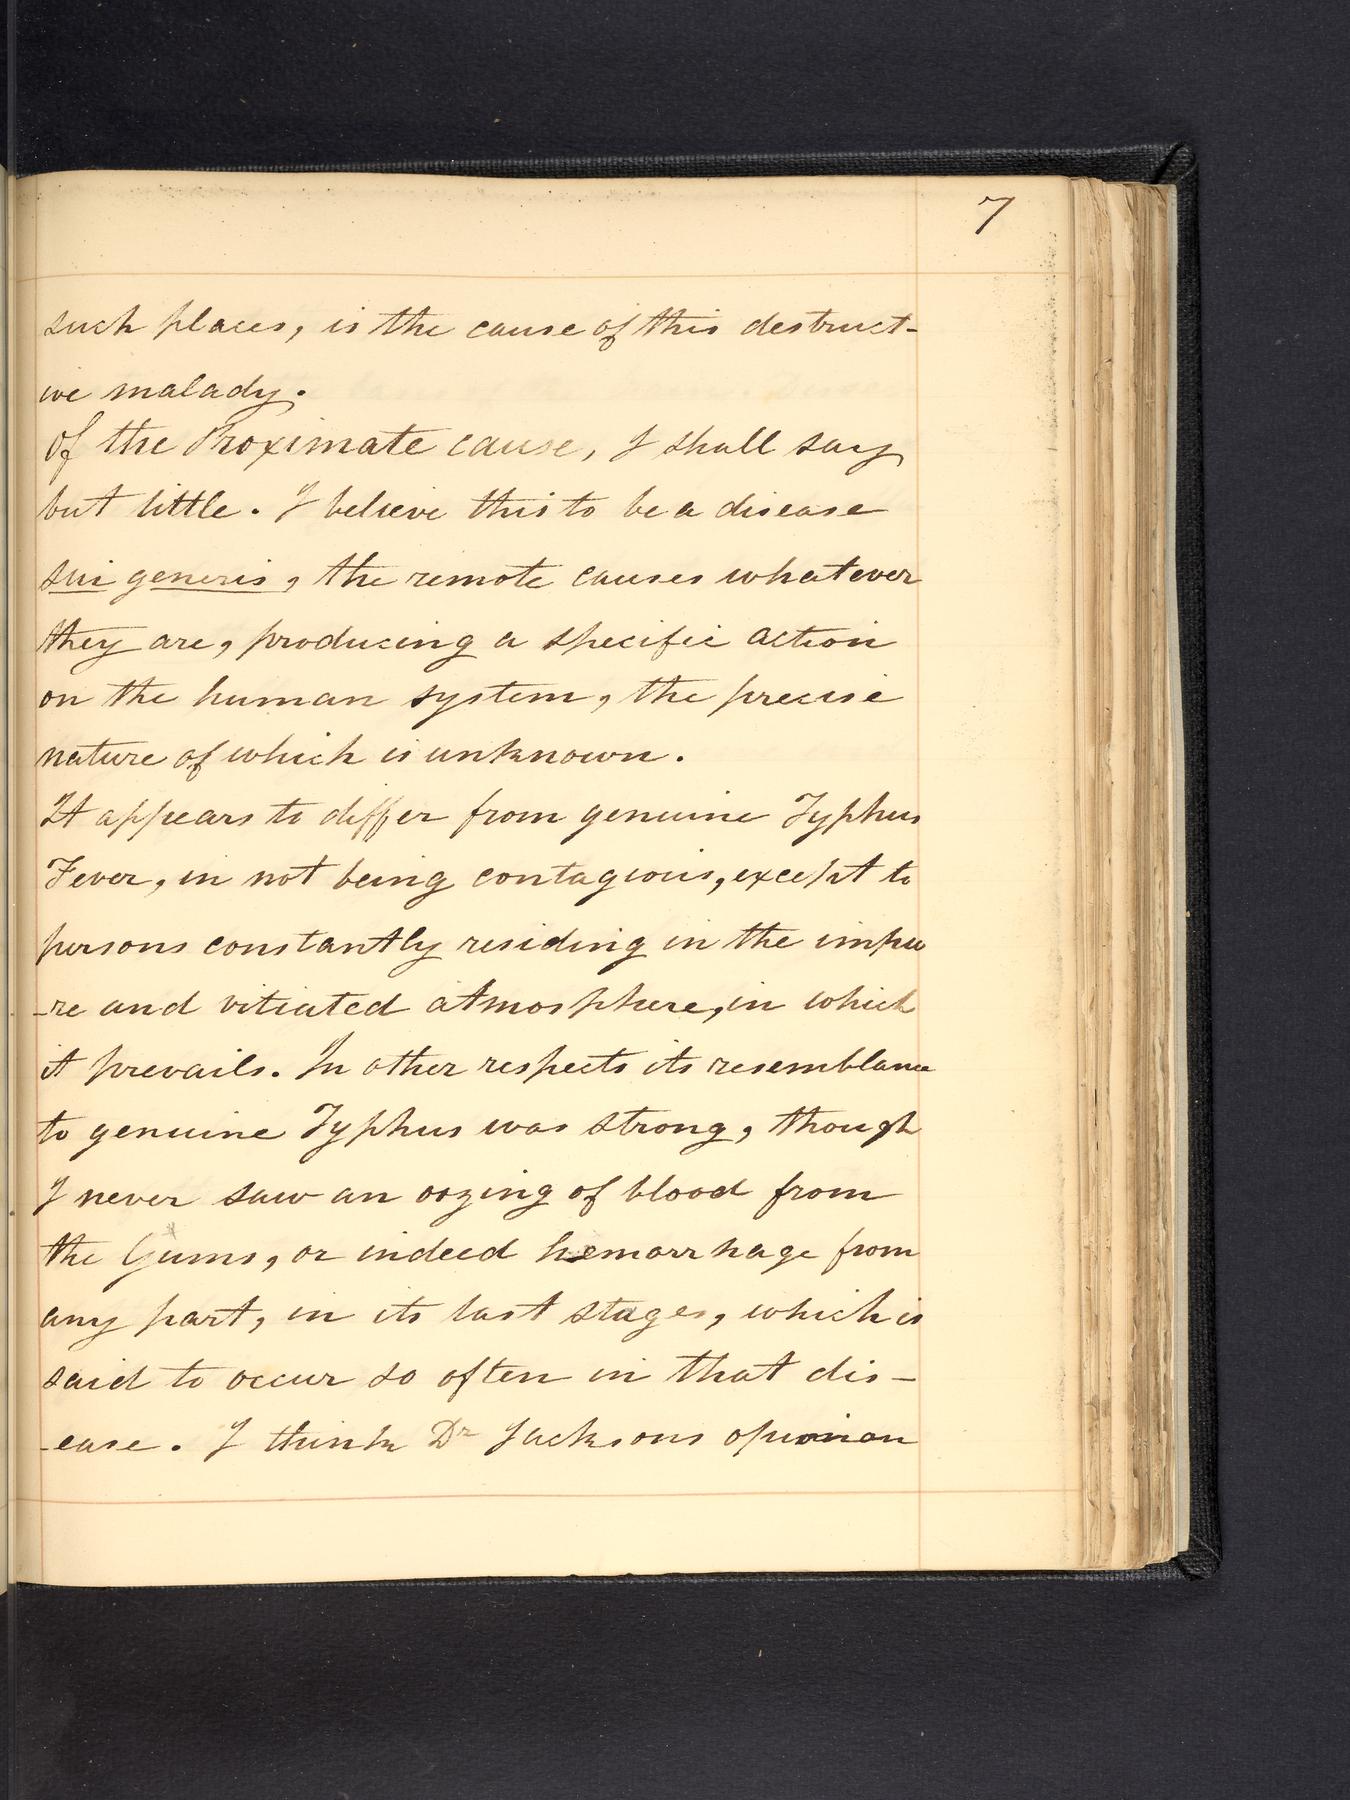 7
such places, is the cause of this destruct-
ive malady.
Of the Proximate cause, I shall say
but little. I believe this to be a disease
sui generis, the remote causes whatever
they are, producing a specific action
on the human system, the precise
nature of which is unknown.
It appears to differ from genuine Typhus
Fever, in not being contagious, except to
persons constantly residing in the impu
-re and vitiated atmosphere, in which
it prevails. In other respects its resemblance
to genuine Typhus was strong, though
I never saw an oozing of blood from
the Gums, or indeed hemorrhage from
any part, in its last stages, which is
said to occur so often in that dis-
-ease. I think Dr Jacksons opinion